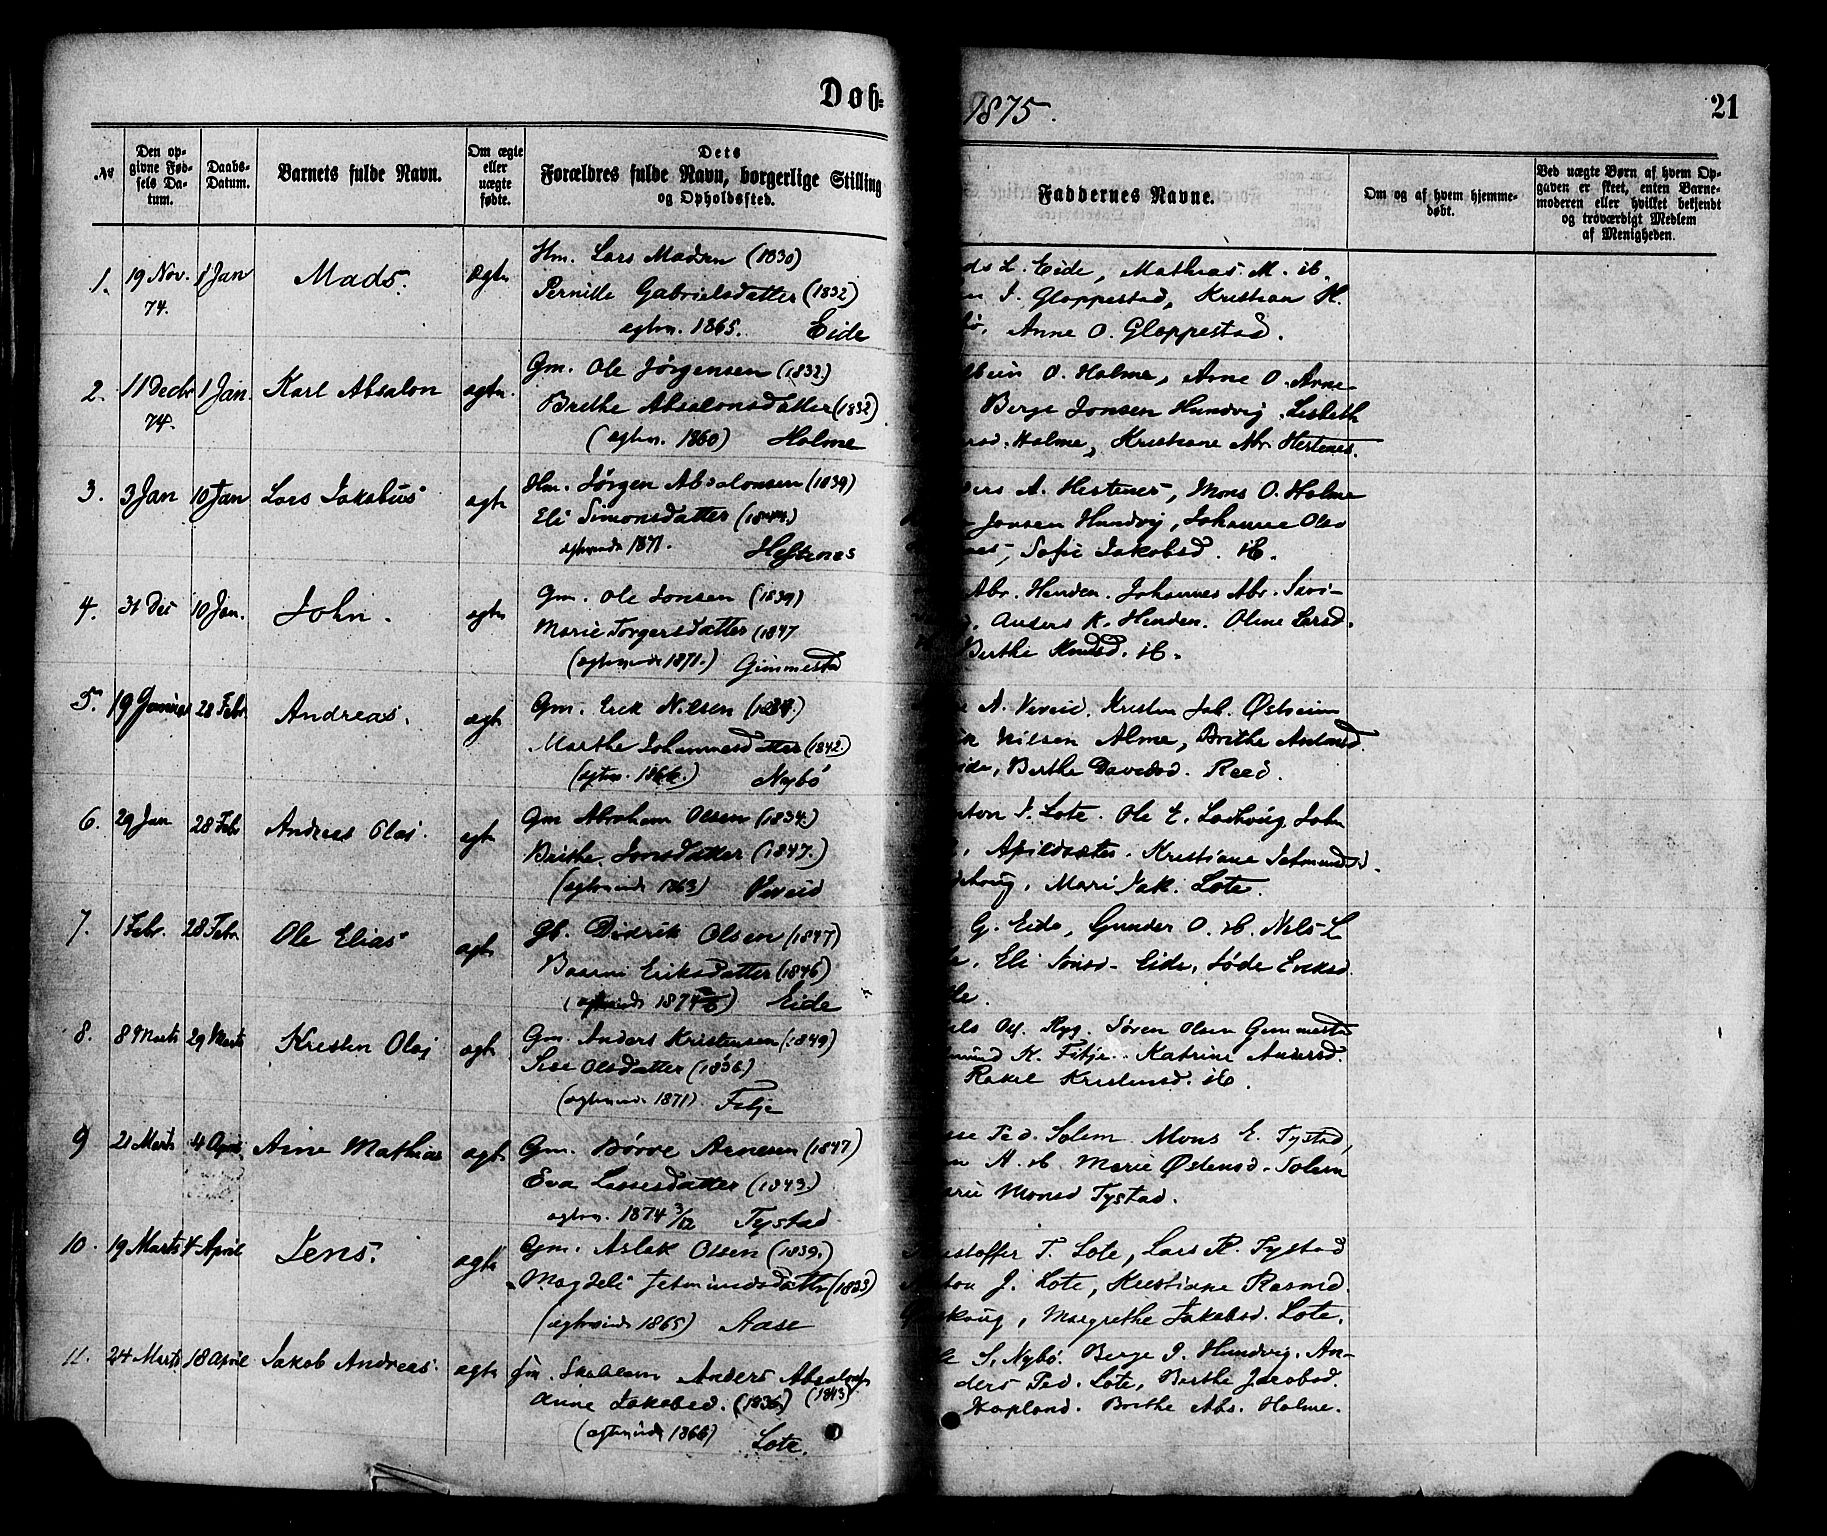 Døb=
1875.
21
№
Den op-
givne Fød-
sels Da-
tum.
Daabs-
Datum.
Barnets fulde Navn.
Om ægte
eller
uægte
fødte.
Dets
Forældres fulde Navn, borgerlige Stilling
og Opholdssted.
Faddernes Navne.
Om og af hvem hjemme-
døbt.
Ved uægte Børn af hvem Op-
gaven er skeet, enten Barne-
moderen eller hvilket bekjendt
og troværdigt Medlem
af Menigheden.
1. 19 Nov. 74. 1 Jan Mads. ægte
Hm. Lars Madsen (1830)
Pernille Gabrielsdatter (1832)
egtev. 1865. Eide
L. Eide, Mathias M. ib.
I. Gloppestad, Kristian H.
Anne O. Gloppestad.
2. 11 Decbr 74. 1 Jan. Karl Absalon ægte.
Gm. Ole Jørgensen (1832.)
Brethe Absalonsdatter (1832)
(egtev. 1860) Holme
O. Holme, Arne O. Arne-
Berge Jonsen Hundvig. Lisbeth
Holme, Kristiane Abr. Hestenes.
3. 3 Jan 10 Jan Lars Jakobus ægte
Hm. Jørgen Absalonsen (1839)
Eli Simonsdatter (1844.)
1871. Hestenes
A. Hestenes, Mons O. Holme
Jonsen Hundvig, Johanne Olsd
Sofie Jakobsd. ib.
4. 31 Dec 10 Jan. John. ægte
Gm. Ole Jonsen (1839)
Marie Torgersdatter (1847
(1871.) Gimmestad
Abr. Henden. Johannes Abr.
Anders K. Henden. Oline Larsd.
Berthe Knudsd. ib.
5. 19 Januar 28 Febr. Andreas. ægte
Gm. Erik Nilsen
Marthe Johannesdatter (1842.)
(egtev. 1866.) Nybø
A. Vereid. Kristen Jak. Østheim
Nilsen Alme, Brithe Antonsd.
Berthe Davidsd. Reed.
6. 29 Jan 28 Febr Andreas Olai. egte
Gm Abraham Olsen (1834.)
Brithe Jonsdatter (1847.)
(1863) Vereid
I. Lote. Ole E. John
Apildsæter. Kristiane Jetmundsd.
Mari Jak. Lote.
7. 1 Febr. 28 Febr Ole Elias ægte
Gb. Didrik Olsen (1847)
Eriksdatter (1846)
Eide
G. Eide, Gunder O. ib. Nils L
Eli Eide, Eriksd.
8. 8 Marts 29 Marts Kristen Olai ægte
Gm. Anders Kristensen (1849)
Sise Olsdatter (1836)
(1871) Fitje
Ryg. Søren Olsen Gimmestad
K. Fitje. Katrine Andersd.
Rakel Kristensd. ib.
9 21 Marts 4 April Arne Mathias ægte
Gm. Børre Arnesen (1847)
Eva Lassesdatter (1843.)
egtev. 1874 3/12 Tystad
Ped. Solem Mons E. Tystad,
A. ib. Marie Østensd. Solem
Monsd Tystad.
10. 19 Marts 4 April Jens. ægte
Gm. Aslak Olsen (1839.)
Magdeli Jetmundsdatter (1833)
(1865) Aase
T. Lote, Lars R. Tystad
J. Lote, Kristiane Rasmd.
Margrethe Jakobsd. Lote.
11. 24 Marts 18 April Jakob Andreas. ægte
Anders Absalons
Anne Jakobsd. (1836) (1843)
(1866) Lote.
S. Nybø. Berge J. Hundvig. An-
ders Ped. Lote, Berthe Jacobsd.
Hopland. Brithe Abs. Holme.